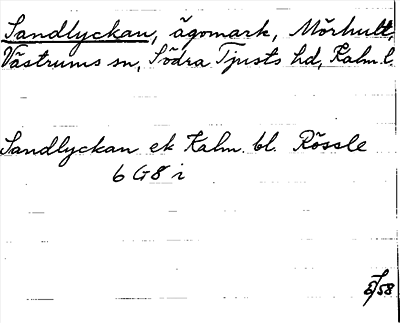 Sandlyckan, ägomark, Mörhult,
Västrums sn, Södra Tjusts hd, Kalm. l.
Sandlyckan ek Kalm. bl. Rössle
6 G8 i
5/58